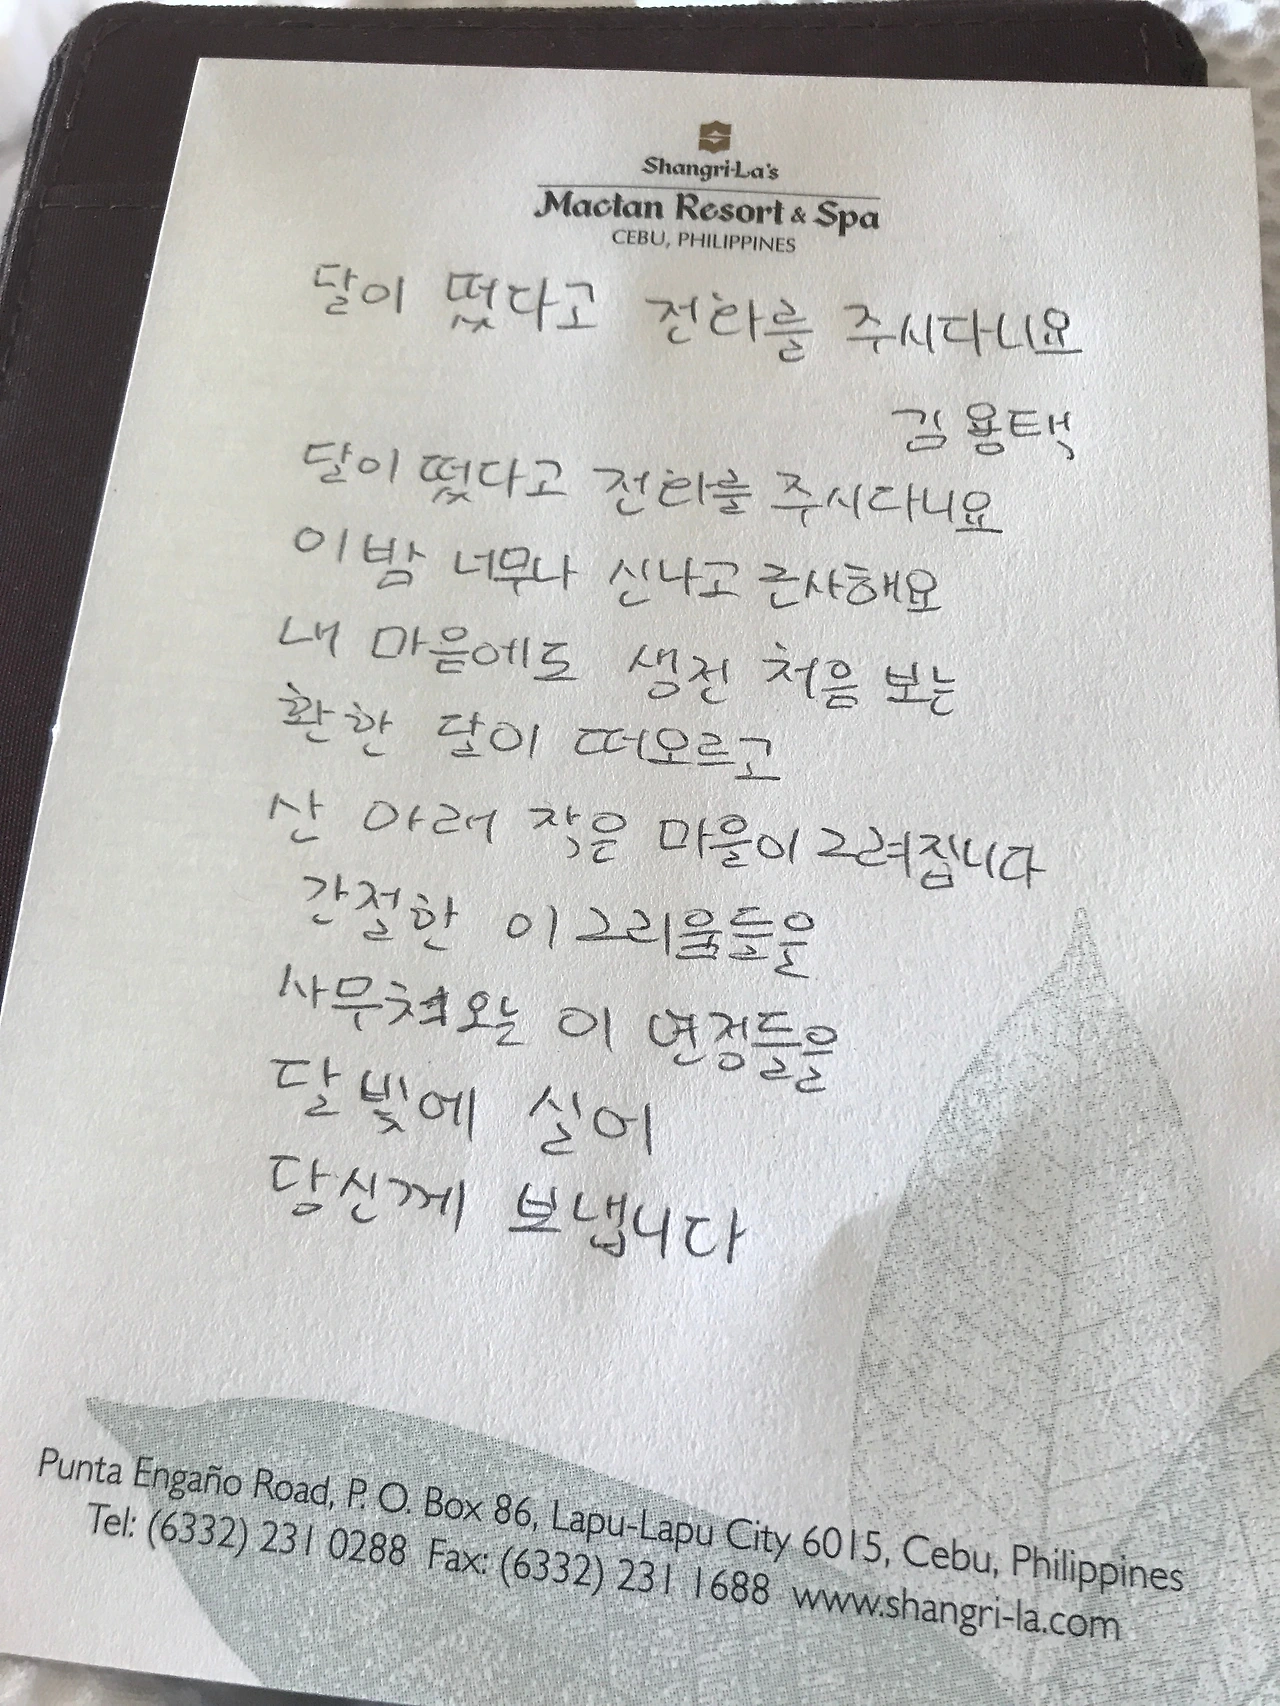 Shangri-La's
Mactan Resort & Spa
CEBU, PHILIPPINES
달이 떴다고 전화를 주시다니요
김용택
달이 떴다고 전화를 주시다니요
이 밤 너무나 신나고 근사해요
내 마음에도 생전 처음 보는
환한 달이 떠오르고
산 아래 작은 마을이 그려집니다
간절한 이 그리움들을
사무쳐오는 이 연정들을
달빛에 실어
당신께 보냅니다
Punta Engaño Road, P. O. Box 86, Lapu-Lapu City 6015, Cebu, Philippines
Tel: (6332) 231 0288 Fax: (6332) 231 1688 www.shangri-la.com